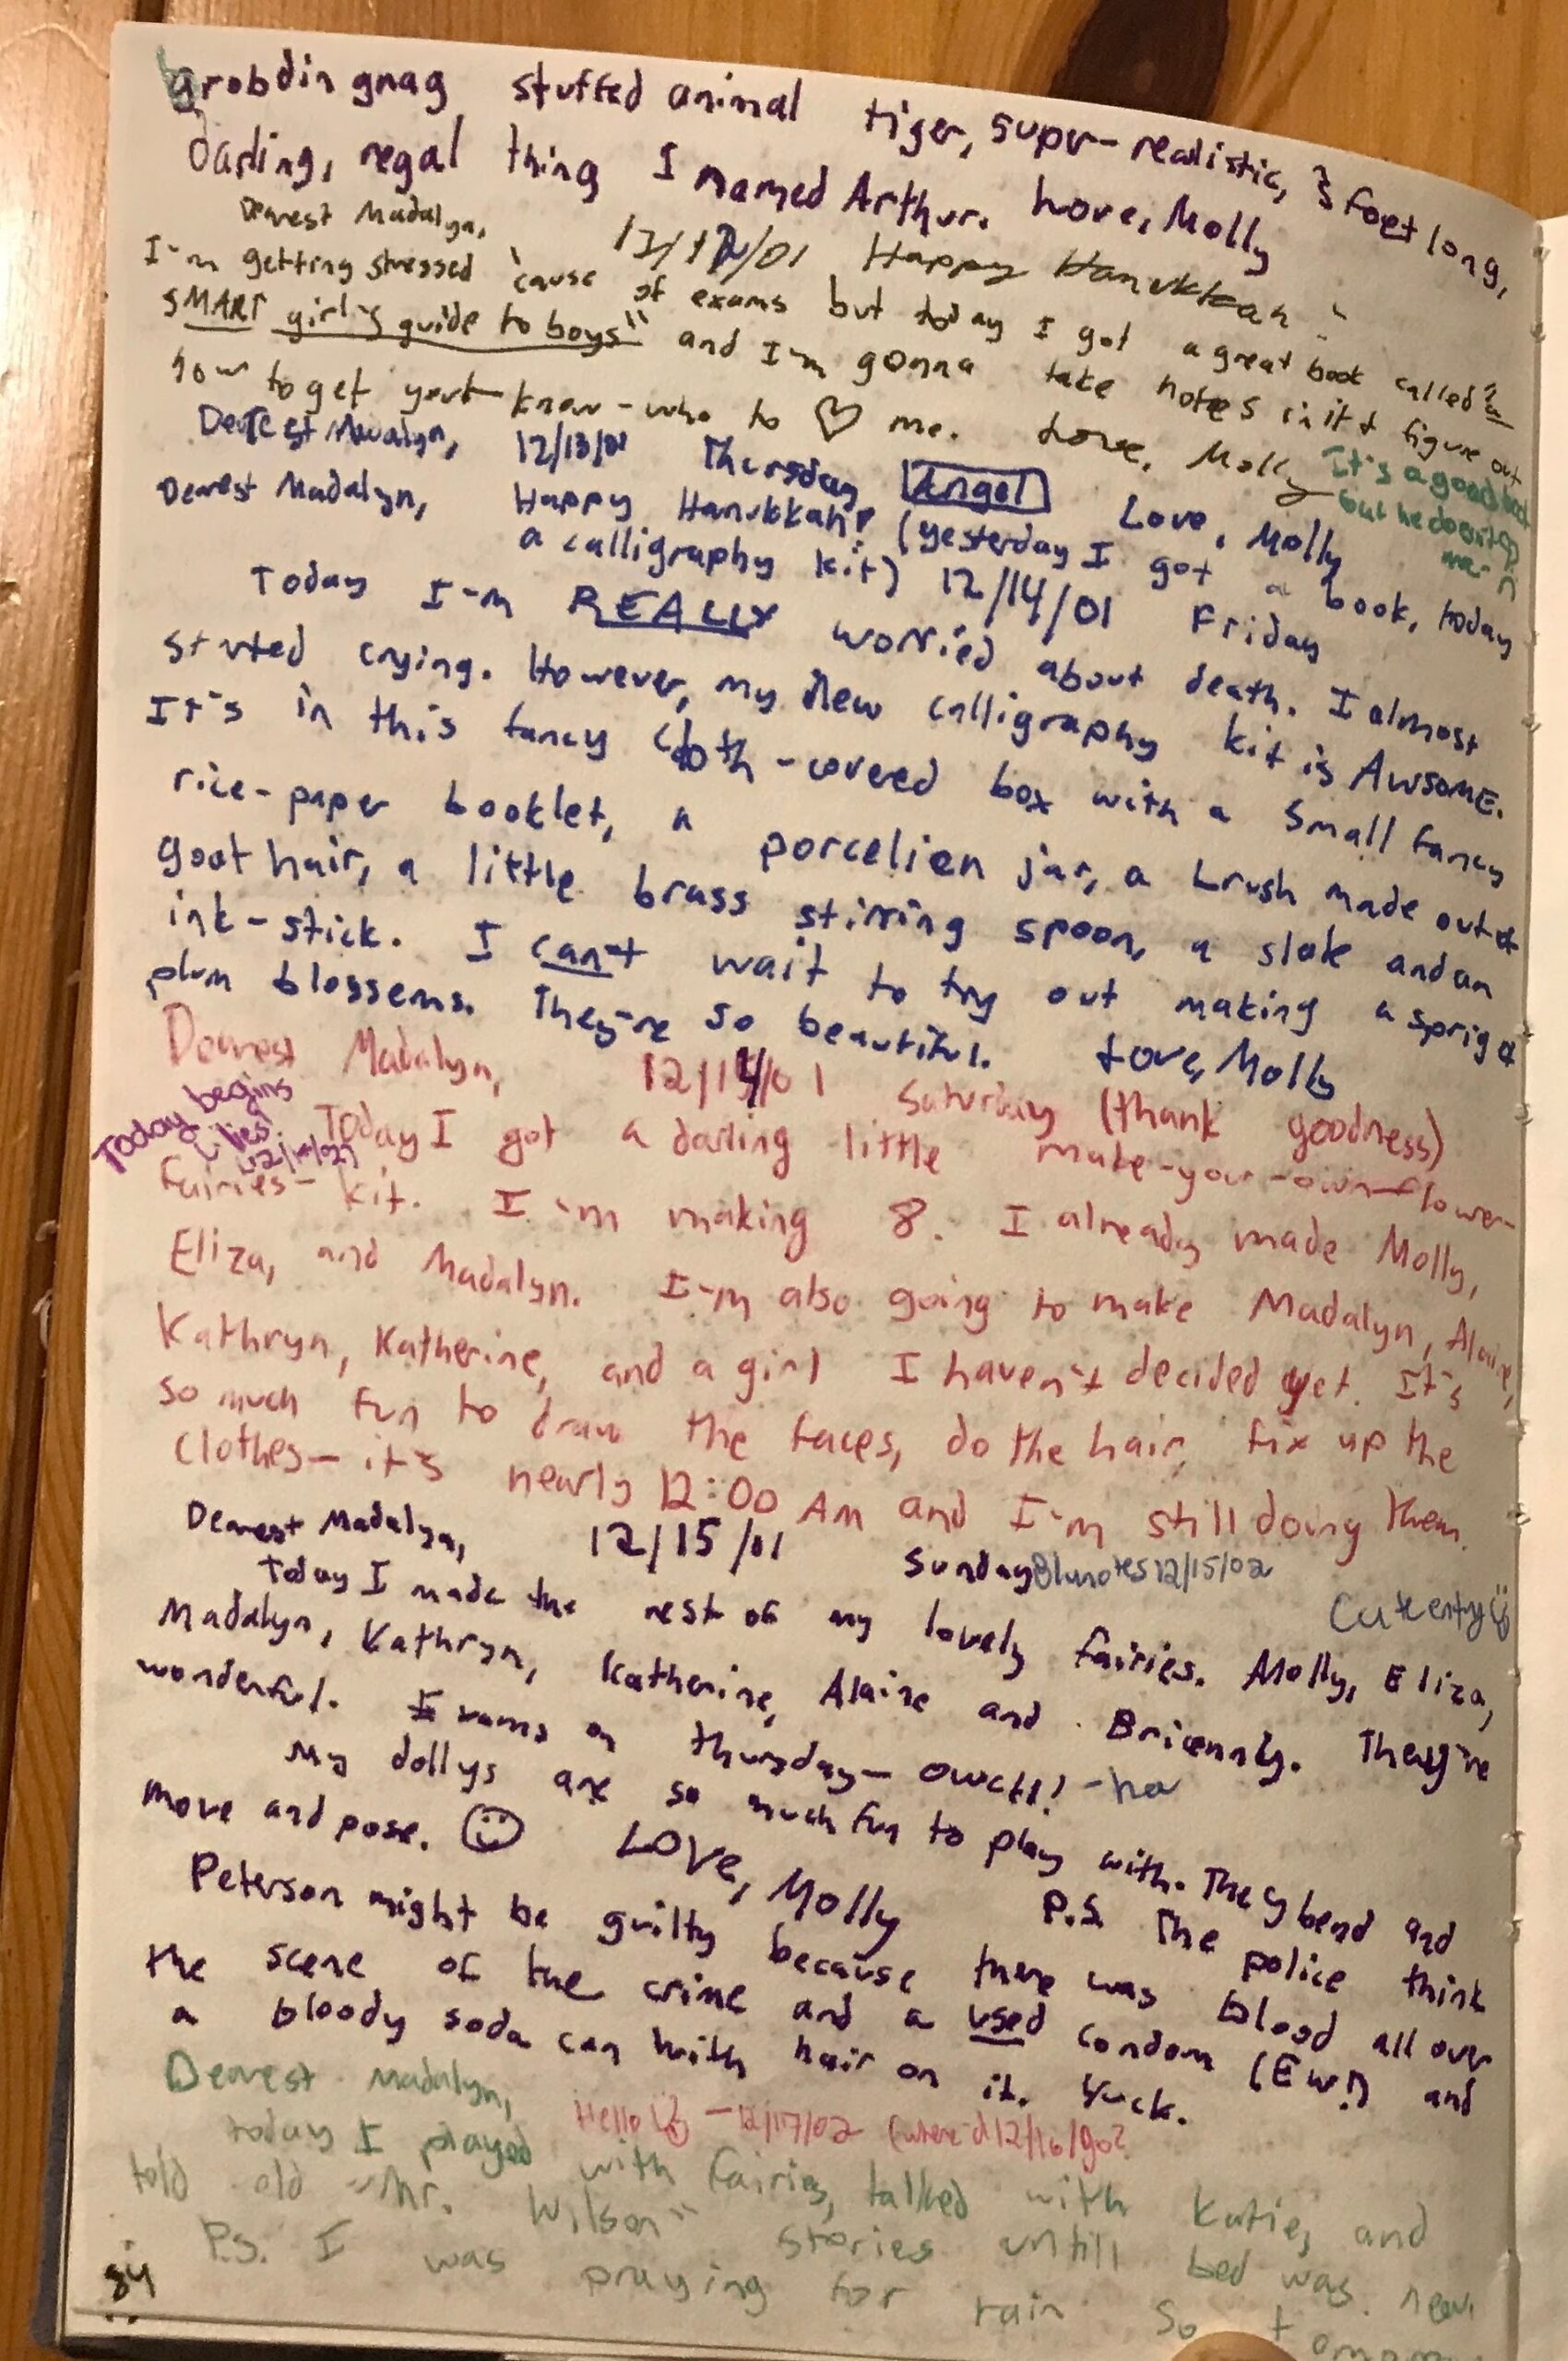 Brobdingnag stuffed animal tiger, super-realistic, 3 foot long,
darling, regal thing I named Arthur. Love, Molly
Dearest Madalyn, 12/12/01 Happy Hanukkah!
I'm getting stressed 'cause of exams but today I got a great book called "a
SMART girl's guide to boys" and I'm gonna take notes in it & figure out
how to get you-know-who to ♡ me. Love, Molly
It's a good book
but he doesn't
me
Dearest Madalyn, 12/13/01 Thursday Angel Love, Molly
Dearest Madalyn, Happy Hanukkah! (yesterday I got a book, today
a calligraphy kit) 12/14/01 Friday
Today I'm REALLY worried about death. I almost
started crying. However, my new calligraphy kit is AWSOME.
It's in this fancy cloth-covered box with a small fancy
rice-paper booklet, a porcelien jar, a brush made out of
goat hair, a little brass stirring spoon, a slate and an
ink-stick. I can't wait to try out making a sprig of
plum blossems. They're so beautiful. Love, Molly
Dearest Madalyn, 12/14/01 Saturday (thank goodness)
Today begins
lies!
12/14/02)
Today I got a darling little make-your-own-flower-
fairies-kit. I'm making 8. I already made Molly,
Eliza, and Madalyn. I'm also going to make Madalyn, Alaire,
Kathryn, Katherine, and a girl I haven't decided yet. It's
so much fun to draw the faces, do the hair, fix up the
clothes - it's nearly 12:00 AM and I'm still doing them.
Dearest Madalyn, 12/15/01 Sunday Blunotes 12/15/02
Cute entry
Today I made the rest of my lovely fairies. Molly, Eliza,
Madalyn, Kathryn, Katherine, Alaire and Briennly. They're
wonderful. Exams on thursday - owch! -ha
My dollys are so much fun to play with. They bend and
move and pose. ☺ LOVE, Molly P.S. The police think
Peterson might be guilty because there was blood all over
the scene of the crime and a used condom (Ew!) and
a bloody soda can with hair on it. Yuck.
Dearest Madalyn, Hello! ☺ - 12/17/02 (where'd 12/16/go?
today I played with fairies, talked with Katie, and
told old "Mr. Wilson" stories untill bed was near.
P.S. I was praying for rain so
84